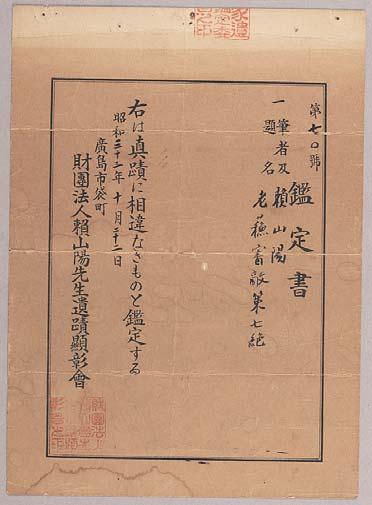 第七〇號
鑑定書
一 筆者及題名 賴山陽 老蘇審敵第七絶
右は真蹟に相違なきものと鑑定する
昭和三十二年十月三十二日
廣島市袋町
財團法人賴山陽先生遺蹟顯彰會